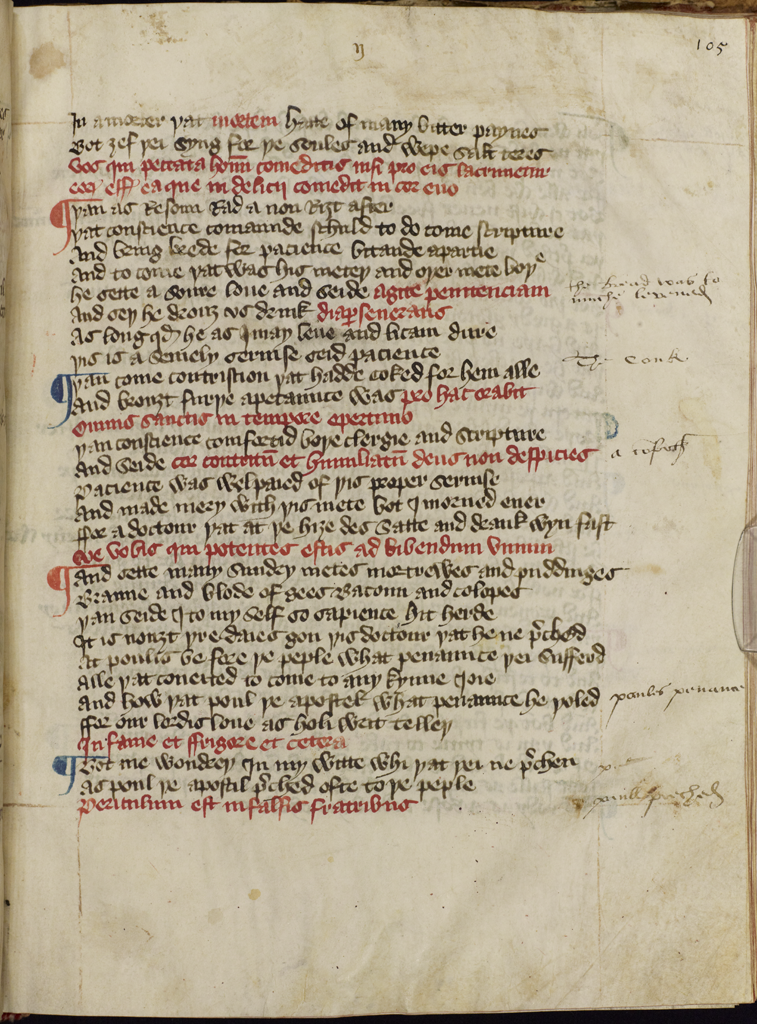 ij
105
In a morter yat mortem hatte of many bitter paynes
Bot ȝef yei syng for ye soules and wepe salt teres
Vos qui peccata hom̄ comeditis nisi pro eis lacrimetur
ea que in delicij comedit in
yan as Resoun Rad a non Riȝt after
yat conscience comaunde schuld to do come scripture
And bring brede for pacience bitande apartie
And to come yat was his metey and oyer mete boye
he sette a soure loue and seide agite penitenciam
And sey he drouȝ vs drink diaperseuerans
As long qd he as I may leue and licam dure
yis is a semely seruise seid pacience
yan come contrission yat hadde coked for hem alle
And brouȝt furye apetaunce was pro hac orabit
Omnis sanctus in tempore oportuno
yan conscience comfortid boye clergie and scripture
And seide cor contritū et humiliatū deus non despicies
Pacience was wel paied of yis proper seruise
And made mery with yis mete bot I morned euer
ffor a doctour yat at ye hiȝe des satte and drank wyn fast
Ve vobis qui potentes estis ad bibendum vinum
And sette many sundry metes mortrewes and puddinges
Branne and blode of gees Bacoun and colopes
yan seide I to my self so sapience hit herde
It is nouȝt yre daies gon yis doctour yat he ne p̄ched
At poulis be fore ye peple what penaunce yei sufferd
Alle yat coueited to come to any kynne Ioie
And how yat poul ye apostel what penaunce he yoled
ffor our lordis loue as holi writ telley
In fame et ffrigore et cetera
Bot me wondrey in my witte whi yat yei ne p̄chen
As poul ye apostil p̄ched ofte to ye peple
Periculum est in falsis fratribus
the bread was to
The Cook
a
paules penance
paull preched